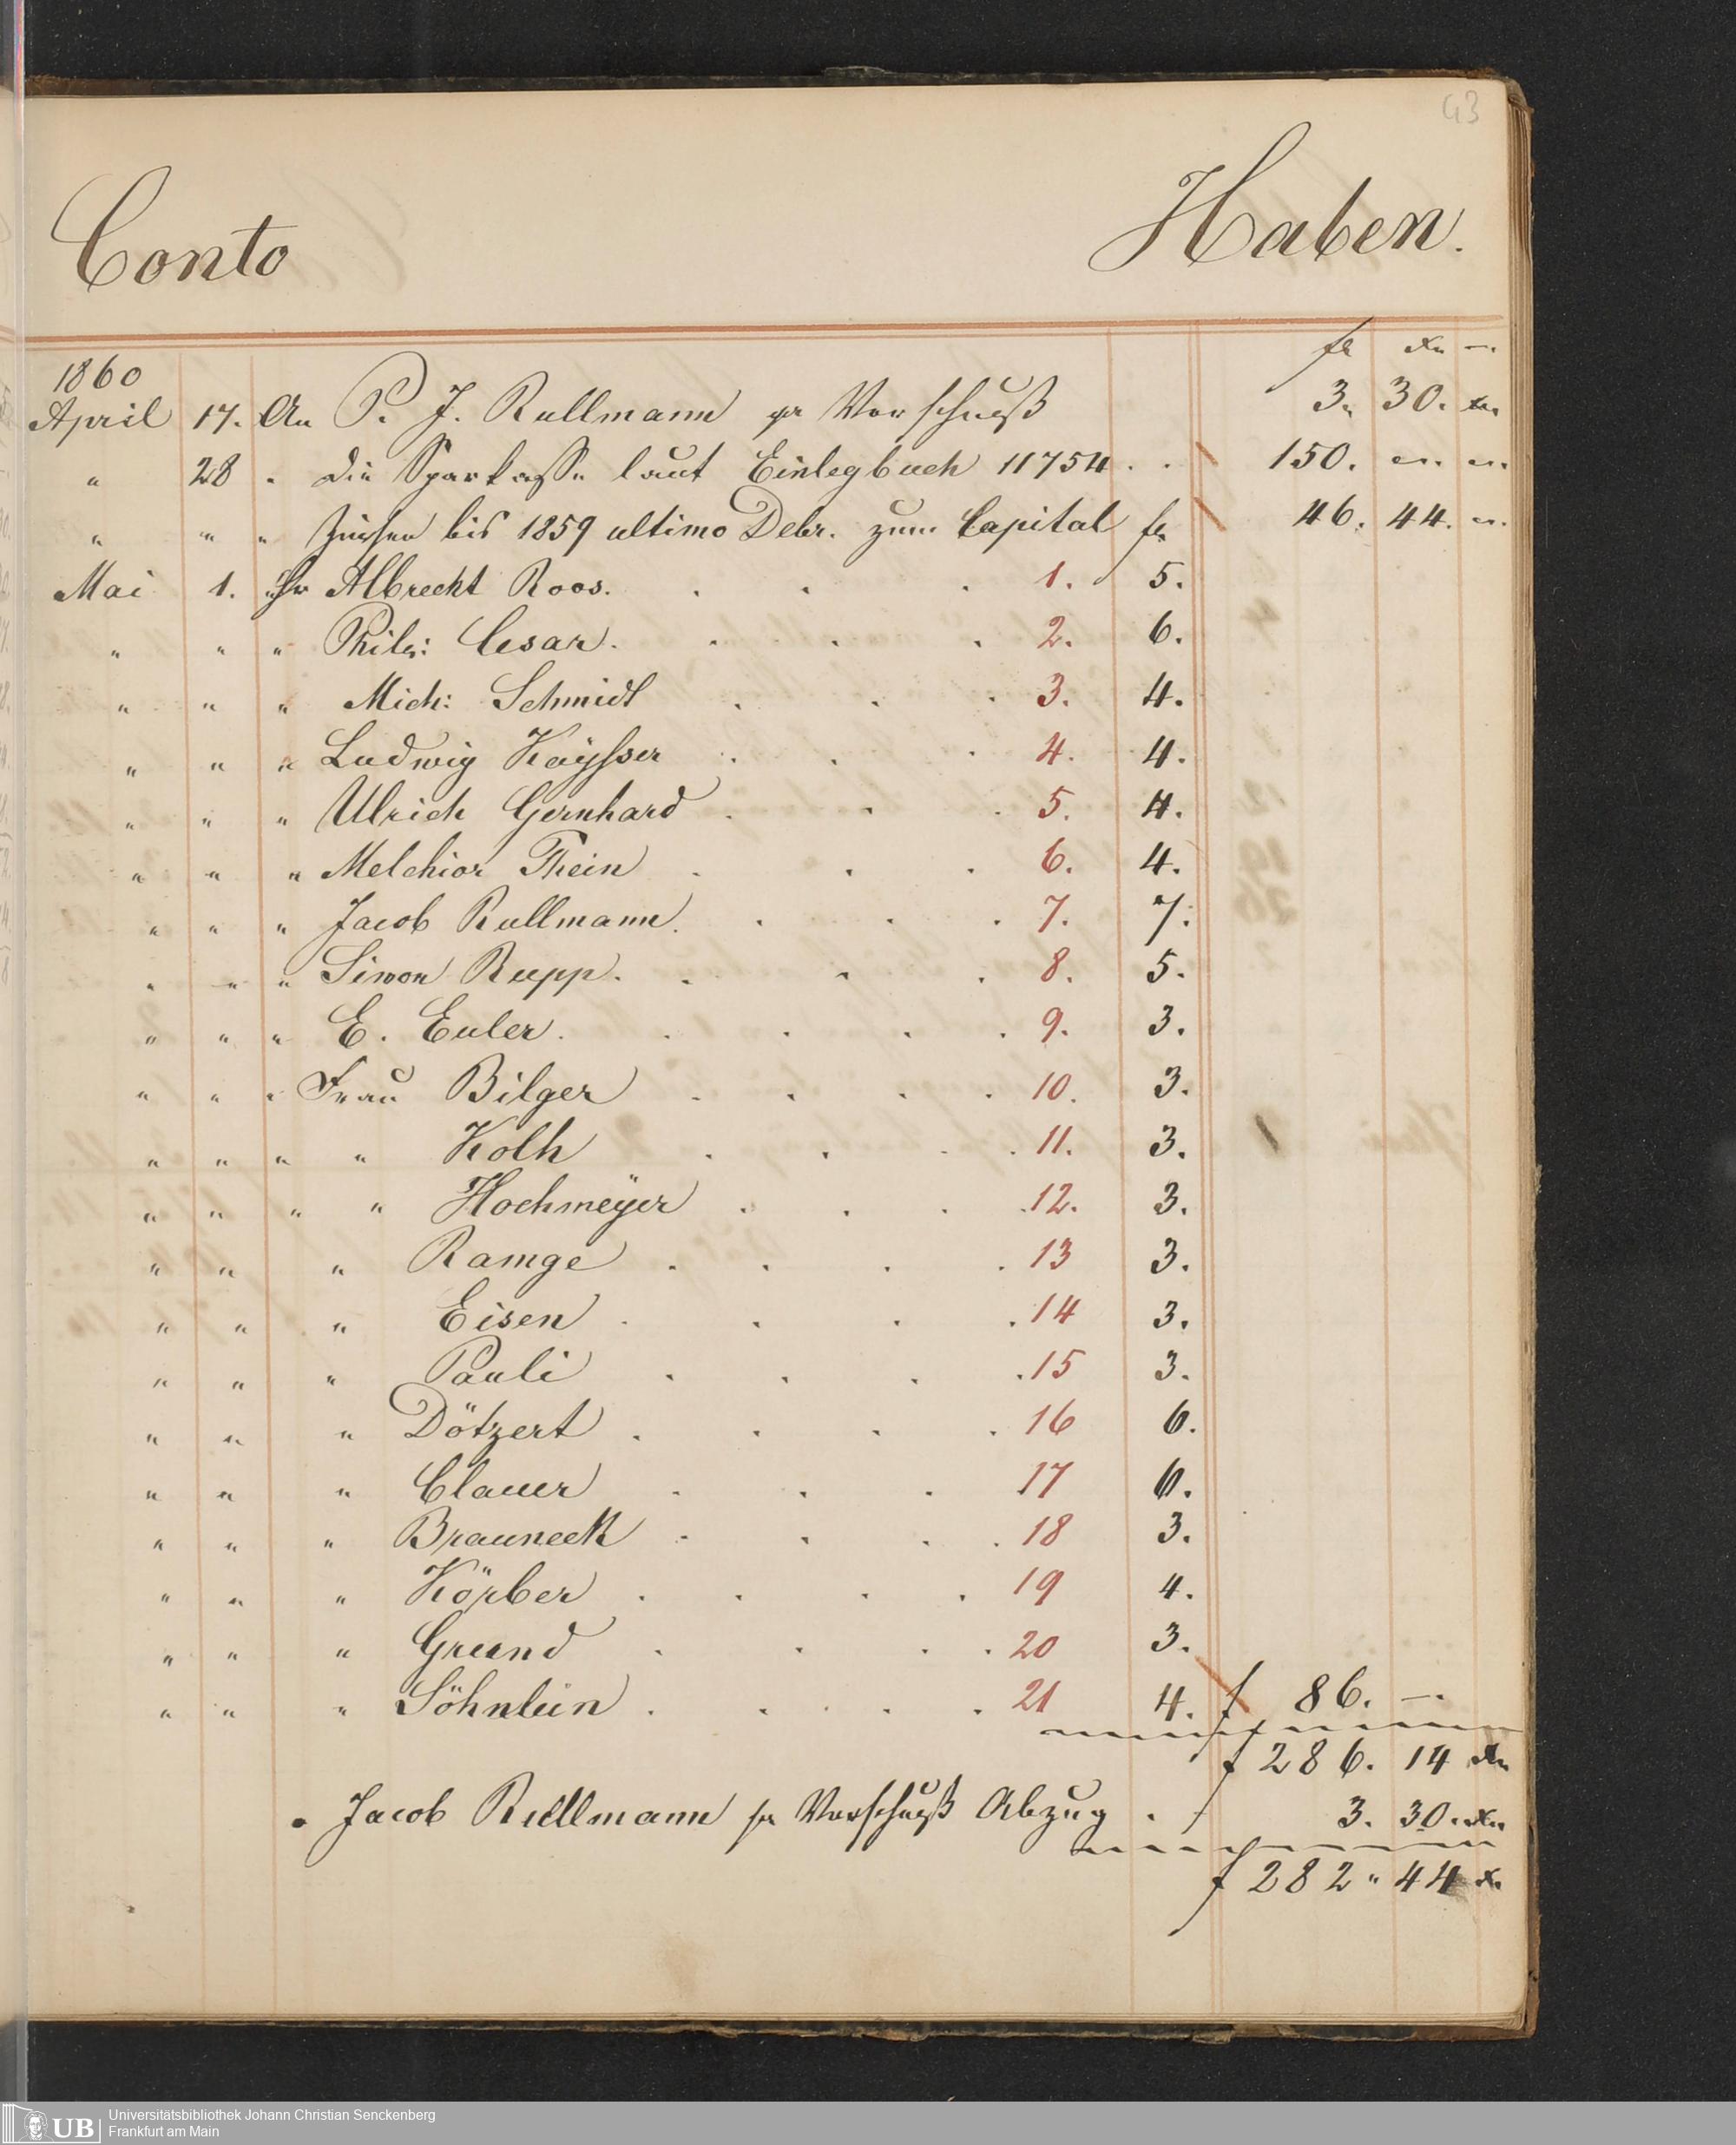 43
Conto Haben.
fl xr —
1860
April 17. An P. J. Rullmann pr Vorschuß 3. 30. xr
" 28 " Die Sparkasse laut Einlegbuch 11754 . . 150. — —
" " " Zinsen bis 1859 ultimo Debr. zum Capital fl 46. 44. —
Mai 1. Hr Albrecht Roos. . . . 1. 5.
" " " Phil: Cesar. . . . 2. 6.
" " " Mich: Schmidt . . . 3. 4.
" " " Ludwig Kaÿsser . . . 4. 4.
" " " Ulrich Gernhard . . . 5. 4.
" " " Melchior Thein . . . 6. 4.
" " " Jacob Rullmann. . . . 7. 7.
" " " Simon Rupp. . . . 8. 5.
" " " E. Euler. . . . . 9. 3.
" " " Frau Bilger . . . . 10. 3.
" " " " Kolh . . . . 11. 3.
" " " " Hochmeÿer . . . . 12. 3.
" " " Ramge . . . . 13 3.
" " " Eisen . . . . 14 3.
" " " Pauli . . . . 15 3.
" " " Dötzert . . . . 16 6.
" " " Clauer . . . 17 6.
" " " Brauneck . . . . 18 3.
" " " Körber . . . . 19 4.
" " " Grund . . . . 20 3.
" " " Söhnlein . . . . . 21 4. f 86. —.
f 286. 14 xr
" Jacob Rullmann pr Vorschuß Abzug . . 3. 30. xr
f 282 " 44 xr
UB Universitätsbibliothek Johann Christian Senckenberg
Frankfurt am Main